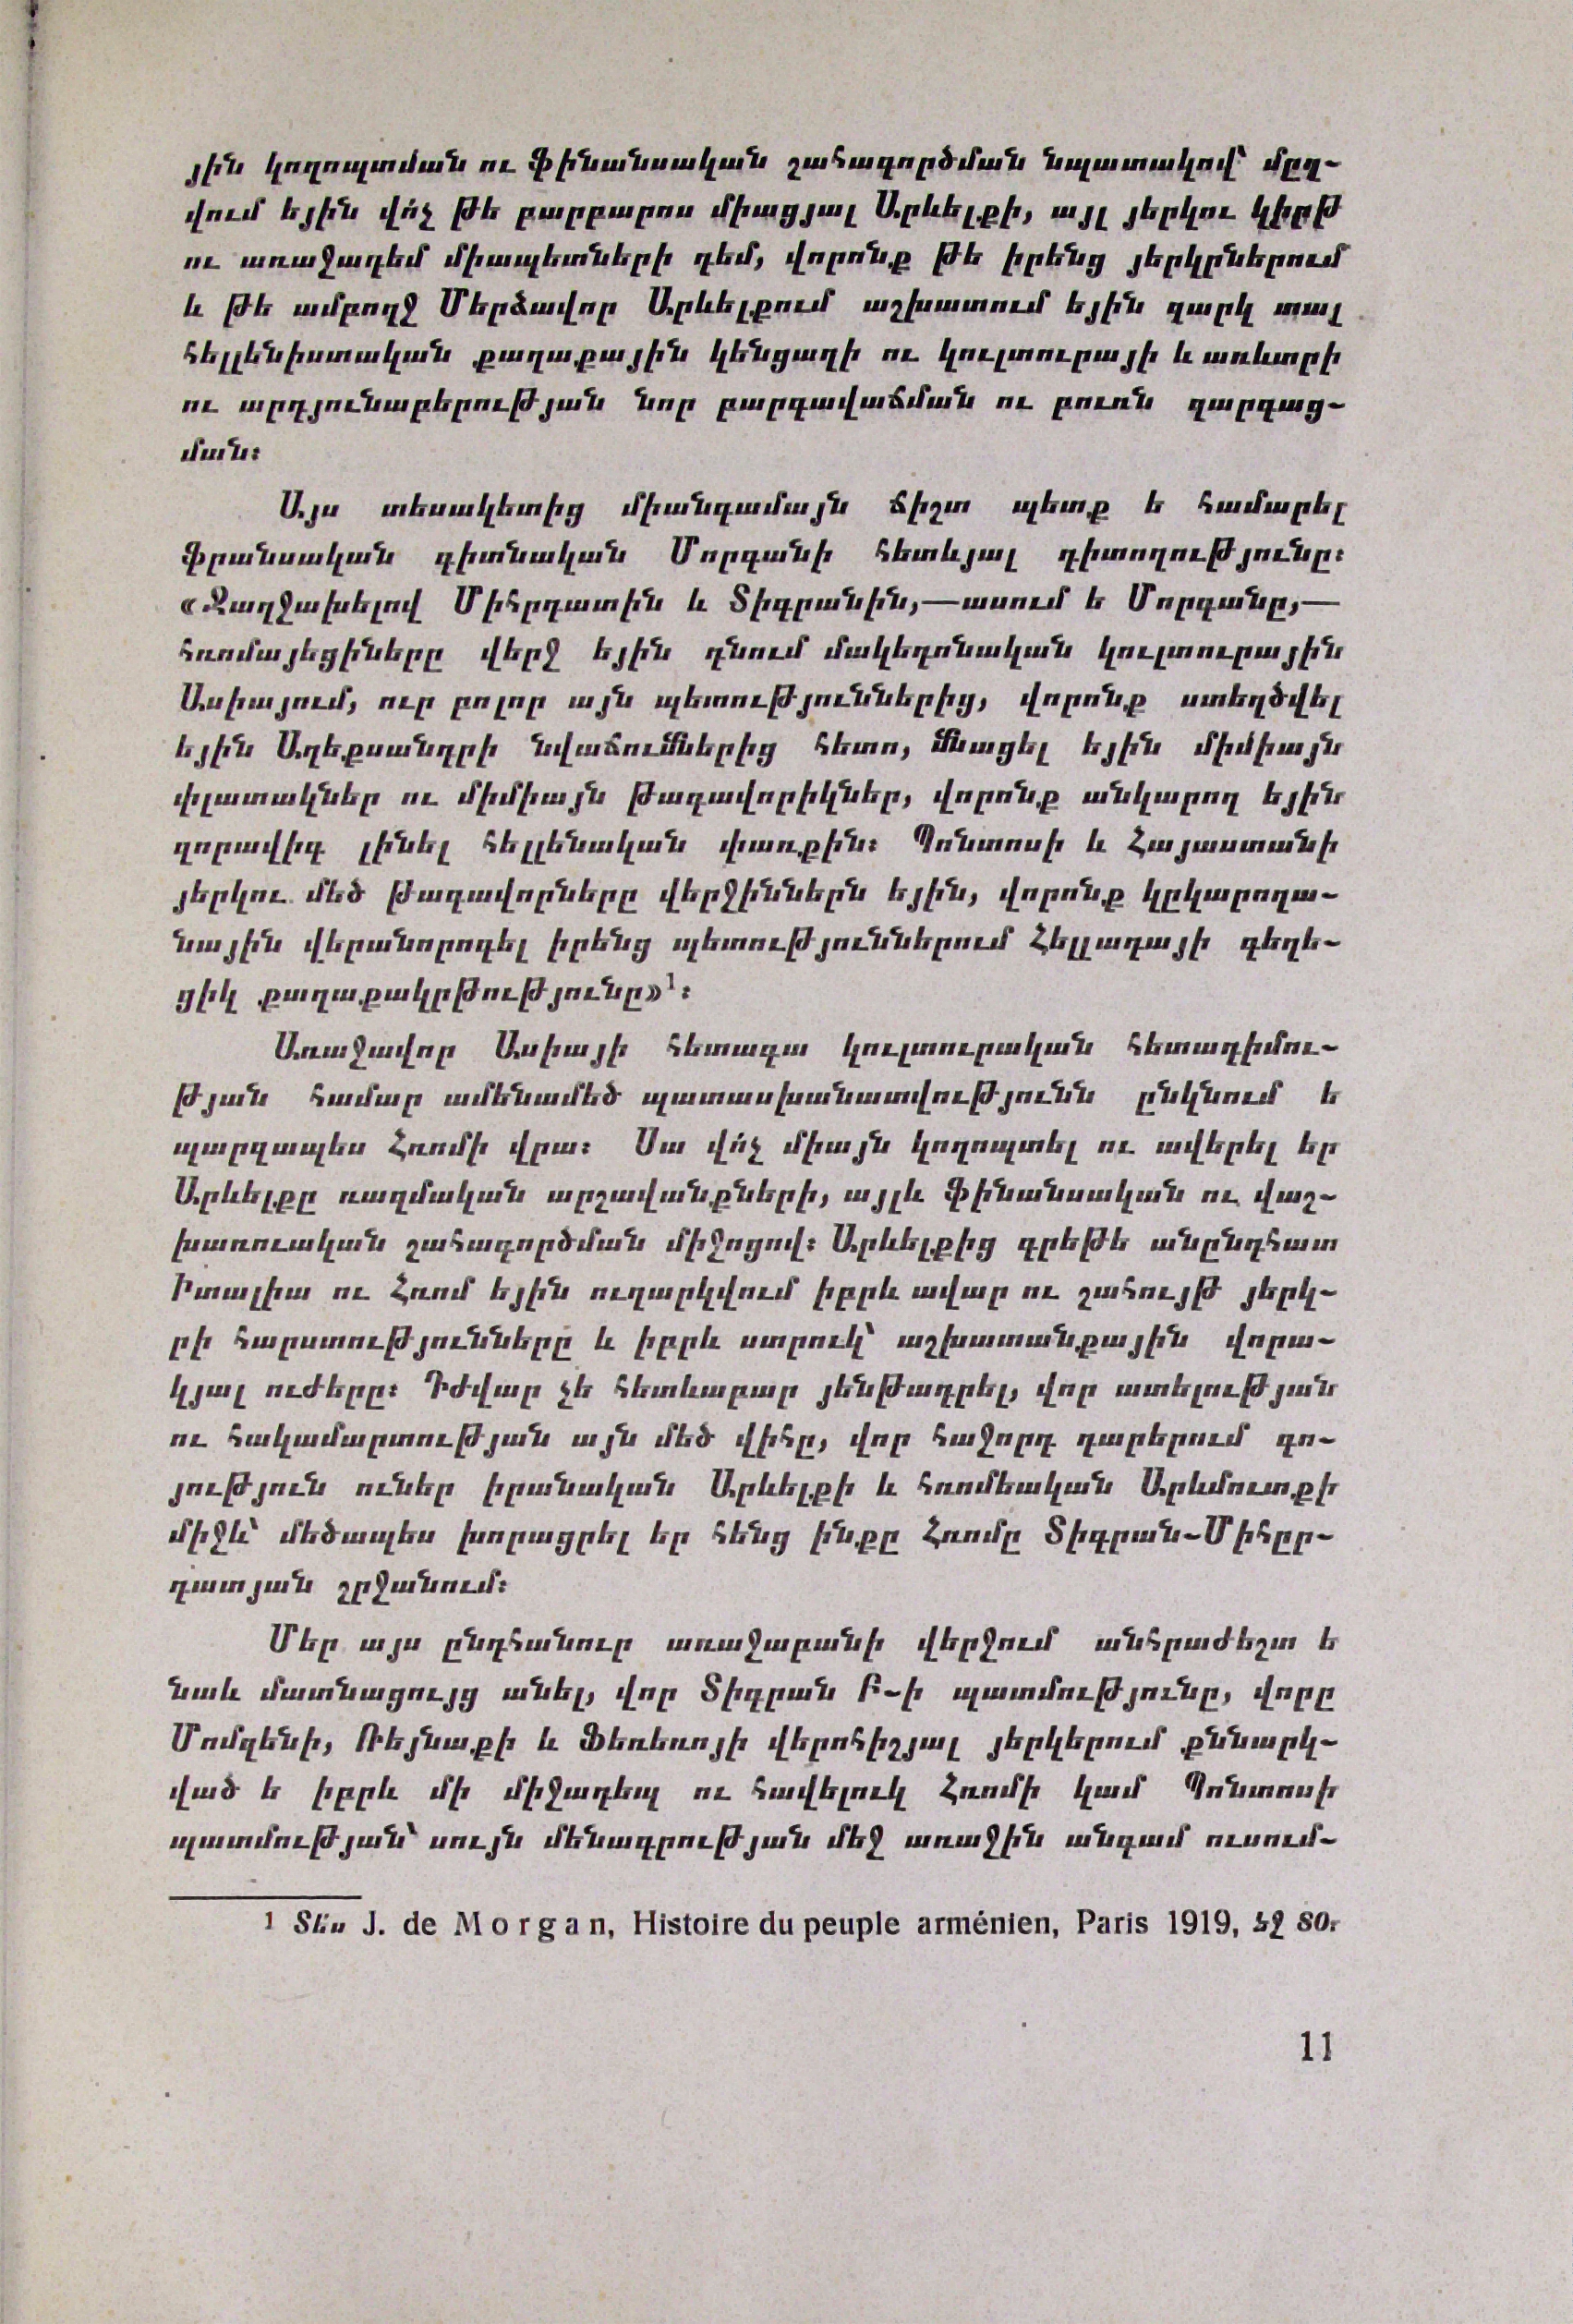 յին կողոպտման ու ֆինանսական շահագործման նպատակով՝ մըղ-
վում եյին վո՛չ թե բարբարոս միացյալ Արևելքի, այլ յերկու կիրթ
ու առաջադեմ միապետների դեմ, վորոնք թե իրենց յերկըրներում
և թե ամբողջ Մերձավոր Արևելքում աշխատում եյին զարկ տալ
հելլենիստական քաղաքային կենցաղի ու կուլտուրայի և առևտրի
ու արդյունաբերության նոր բարգավաճման ու բուռն զարգաց-
ման։
Այս տեսակետից միանգամայն ճիշտ պետք ե համարել
ֆրանսական գիտնական Մորգանի հետևյալ դիտողությունը։
«Ջաղջախելով Միհրդատին և Տիգրանին,—ասում ե Մորգանը,—
հռոմայեցիները վերջ եյին դնում մակեդոնական կուլտուրային
Ասիայում, ուր բոլոր այն պետություններից, վորոնք ստեղծվել
եյին Աղեքսանդրի նվաճումներից հետո, մնացել եյին միմիայն
փլատակներ ու միմիայն թագավորիկներ, վորոնք անկարող եյին
զորավիգ լինել հելլենական փառքին։ Պոնտոսի և Հայաստանի
յերկու մեծ թագավորները վերջիններն եյին, վորոնք կըկարողա-
նային վերանորոգել իրենց պետություններում Հելլադայի գեղե-
ցիկ քաղաքակրթությունը»¹։
Առաջավոր Ասիայի հետագա կուլտուրական հետադիմու-
թյան համար ամենամեծ պատասխանատվությունն ընկնում ե
պարզապես Հռոմի վրա։ Սա վո՛չ միայն կողոպտել ու ավերել եր
Արևելքը ռազմական արշավանքների, այլև ֆինանսական ու վաշ-
խառուական շահագործման միջոցով։ Արևելքից գրեթե անընդհատ
Իտալիա ու Հռոմ եյին ուղարկվում իբրև ավար ու շահույթ յերկ-
րի հարստությունները և իբրև ստրուկ՝ աշխատանքային վորա-
կյալ ուժերը։ Դժվար չե հետևաբար յենթադրել, վոր ատելության
ու հակամարտության այն մեծ վիհը, վոր հաջորդ դարերում գո-
յություն ուներ իրանական Արևելքի և հռոմեական Արևմուտքի
միջև՝ մեծապես խորացրել եր հենց ինքը Հռոմը Տիգրան-Միհըր-
դատյան շրջանում։
Մեր այս ընդհանուր առաջաբանի վերջում անհրաժեշտ ե
նաև մատնացույց անել, վոր Տիգրան Բ-ի պատմությունը, վորը
Մոմզենի, Ռեյնաքի և Ֆեռեռոյի վերոհիշյալ յերկերում քննարկ-
ված ե իբրև մի միջադեպ ու հավելուկ Հռոմի կամ Պոնտոսի
պատմության՝ սույն մենագրության մեջ առաջին անգամ ուսում-
¹ Տե՛ս J. de Morgan, Histoire du peuple arménien, Paris 1919, էջ 80։
11